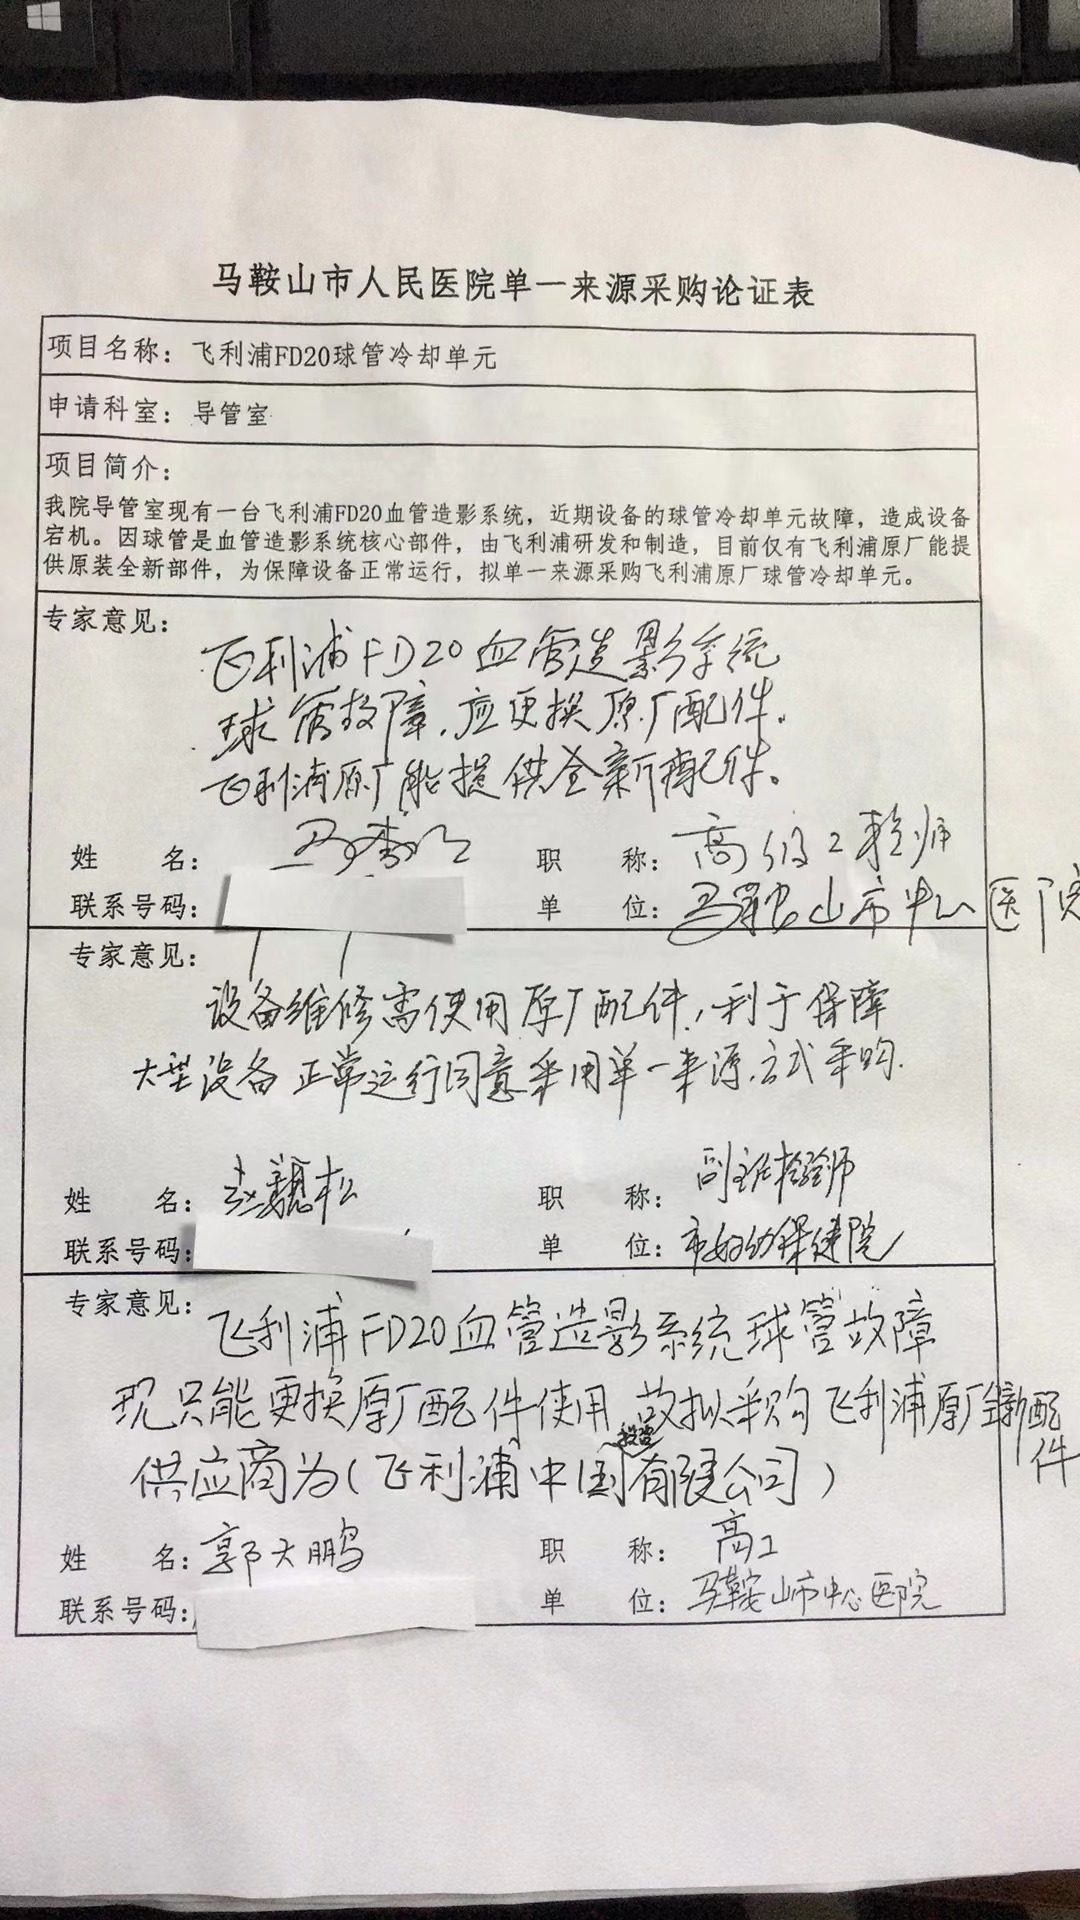 马鞍山市人民医院单一来源采购论证表
项目名称：飞利浦FD20球管冷却单元
申请科室：导管室
项目简介：
我院导管室现有一台飞利浦FD20血管造影系统，近期设备的球管冷却单元故障，造成设备
宕机。因球管是血管造影系统核心部件，由飞利浦研发和制造，目前仅有飞利浦原厂能提
供原装全新部件，为保障设备正常运行，拟单一来源采购飞利浦原厂球管冷却单元。
专家意见：
飞利浦FD20血管造影系统
球管故障，应更换原厂配件。
飞利浦原厂能提供全新配件。
姓 名： 职 称：高级工程师
联系号码： 单 位：马鞍山市中心医院
专家意见：
设备维修需使用原厂配件，利于保障
大型设备正常运行同意采用单一来源方式采购.
姓 名：赵魏松 职 称：副主任检验师
联系号码： 单 位：市妇幼保健院
专家意见：
飞利浦FD20血管造影系统球管故障
现只能更换原厂配件使用，故拟采购飞利浦原厂全新配件
供应商为（飞利浦中国投资有限公司）
姓 名：郭大鹏 职 称：高工
联系号码： 单 位：马鞍山市中心医院